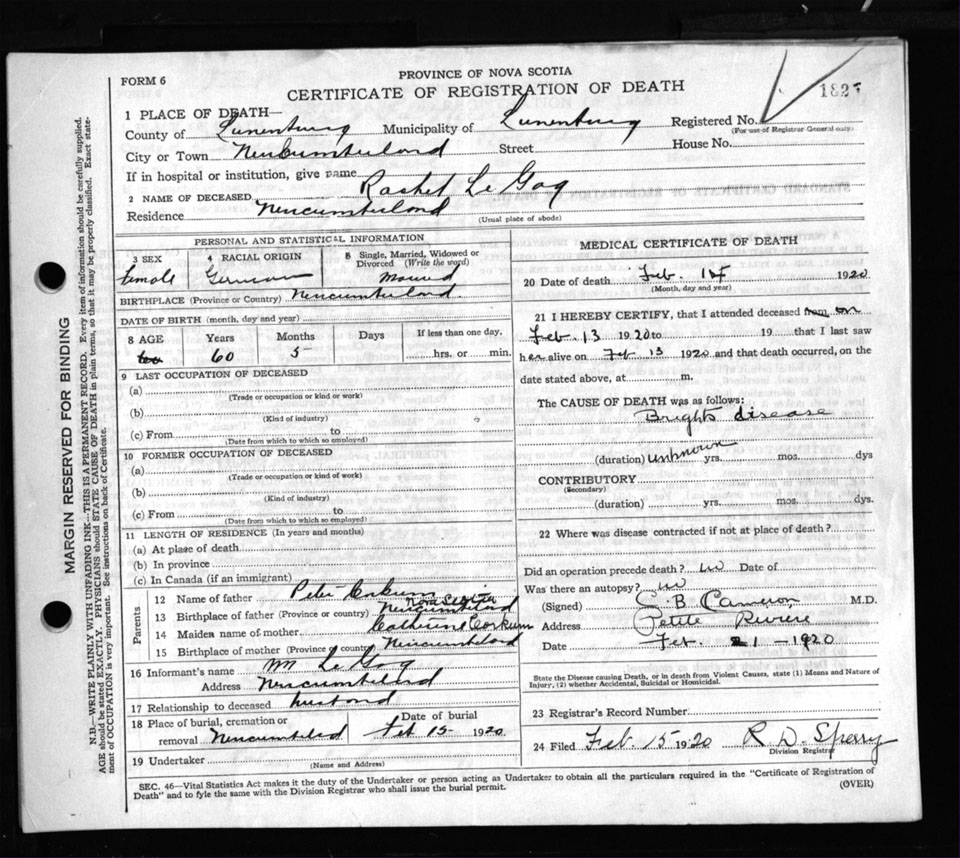 FORM 6
PROVINCE OF NOVA SCOTIA
CERTIFICATE OF REGISTRATION OF DEATH
1827
1 PLACE OF DEATH—
County of Lunenburg Municipality of Lunenburg Registered No.
(For use of Registrar General only)
City or Town Newcumberland Street House No.
If in hospital or institution, give name
2 NAME OF DECEASED Rachel Le Gag
Residence Newcumberland
(Usual place of abode)
PERSONAL AND STATISTICAL INFORMATION
3 SEX
female
4 RACIAL ORIGIN
German
5 Single, Married, Widowed or Divorced (Write the word)
Married
BIRTHPLACE (Province or Country) Newcumberland
DATE OF BIRTH (month, day and year)
8 AGE Years Months Days If less than one day,
60 5 hrs. or min.
9 LAST OCCUPATION OF DECEASED
(a)
(Trade or occupation or kind or work)
(b)
(Kind of industry)
(c) From to
(Date from which to which so employed)
10 FORMER OCCUPATION OF DECEASED
(a)
(Trade or occupation or kind of work)
(b)
(Kind of industry)
(c) From to
(Date from which to which so employed)
11 LENGTH OF RESIDENCE (In years and months)
(a) At place of death
(b) In province
(c) In Canada (if an immigrant)
Parents
12 Name of father Peter Corkum
Nova Scotia
13 Birthplace of father (Province or country) Newcumberland
14 Maiden name of mother Catherine Corkum
15 Birthplace of mother (Province or country) Newcumberland
16 Informant's name M Le Gag
Address Newcumberland
17 Relationship to deceased husband
18 Place of burial, cremation or removal Newcumberland Date of burial Feb 15 1920
19 Undertaker
(Name and Address)
MEDICAL CERTIFICATE OF DEATH
20 Date of death Feb. 14 1920
(Month, day and year)
21 I HEREBY CERTIFY, that I attended deceased from on
Feb 13 1920 to 19 that I last saw
her alive on Feb 13 1920 and that death occurred, on the
date stated above, at m.
The CAUSE OF DEATH was as follows:
Brights disease
(duration) unknown yrs. mos. dys
CONTRIBUTORY
(Secondary)
(duration) yrs. mos. dys.
22 Where was disease contracted if not at place of death?
Did an operation precede death? no Date of
Was there an autopsy? no
(Signed) C. B. Cameron M.D.
Address Petite Riviere
Date Feb. 21 - 1920
State the Disease causing Death, or in death from Violent Causes, state (1) Means and Nature of
Injury, (2) whether Accidental, Suicidal or Homicidal.
23 Registrar's Record Number
24 Filed Feb 15 1920 R D. Sperry
Division Registrar
SEC. 46—Vital Statistics Act makes it the duty of the Undertaker or person acting as Undertaker to obtain all the particulars required in the "Certificate of Registration of
Death" and to fyle the same with the Division Registrar who shall issue the burial permit. (OVER)
MARGIN RESERVED FOR BINDING
N.B.—WRITE PLAINLY WITH UNFADING INK—THIS IS A PERMANENT RECORD. Every item of information should be carefully supplied.
AGE should be stated EXACTLY. PHYSICIANS should STATE CAUSE OF DEATH in plain terms, so that it may be properly classified. Exact state-
ment of OCCUPATION is very important. See instructions on back of Certificate.